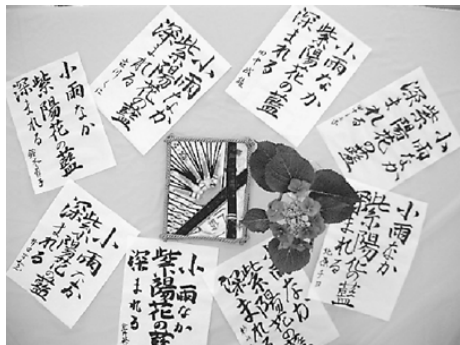 小雨なか
紫陽花の藍
深まれる
小雨なか
紫陽花の藍
深まれる
小雨なか
紫陽花の藍
深まれる
小雨なか
紫陽花の藍
深まれる
小雨なか
紫陽花の藍
深まれる
小雨なか
紫陽花の藍
深まれる
小雨なか
紫陽花の藍
深まれる
雨なか
紫陽花の藍
深まれる